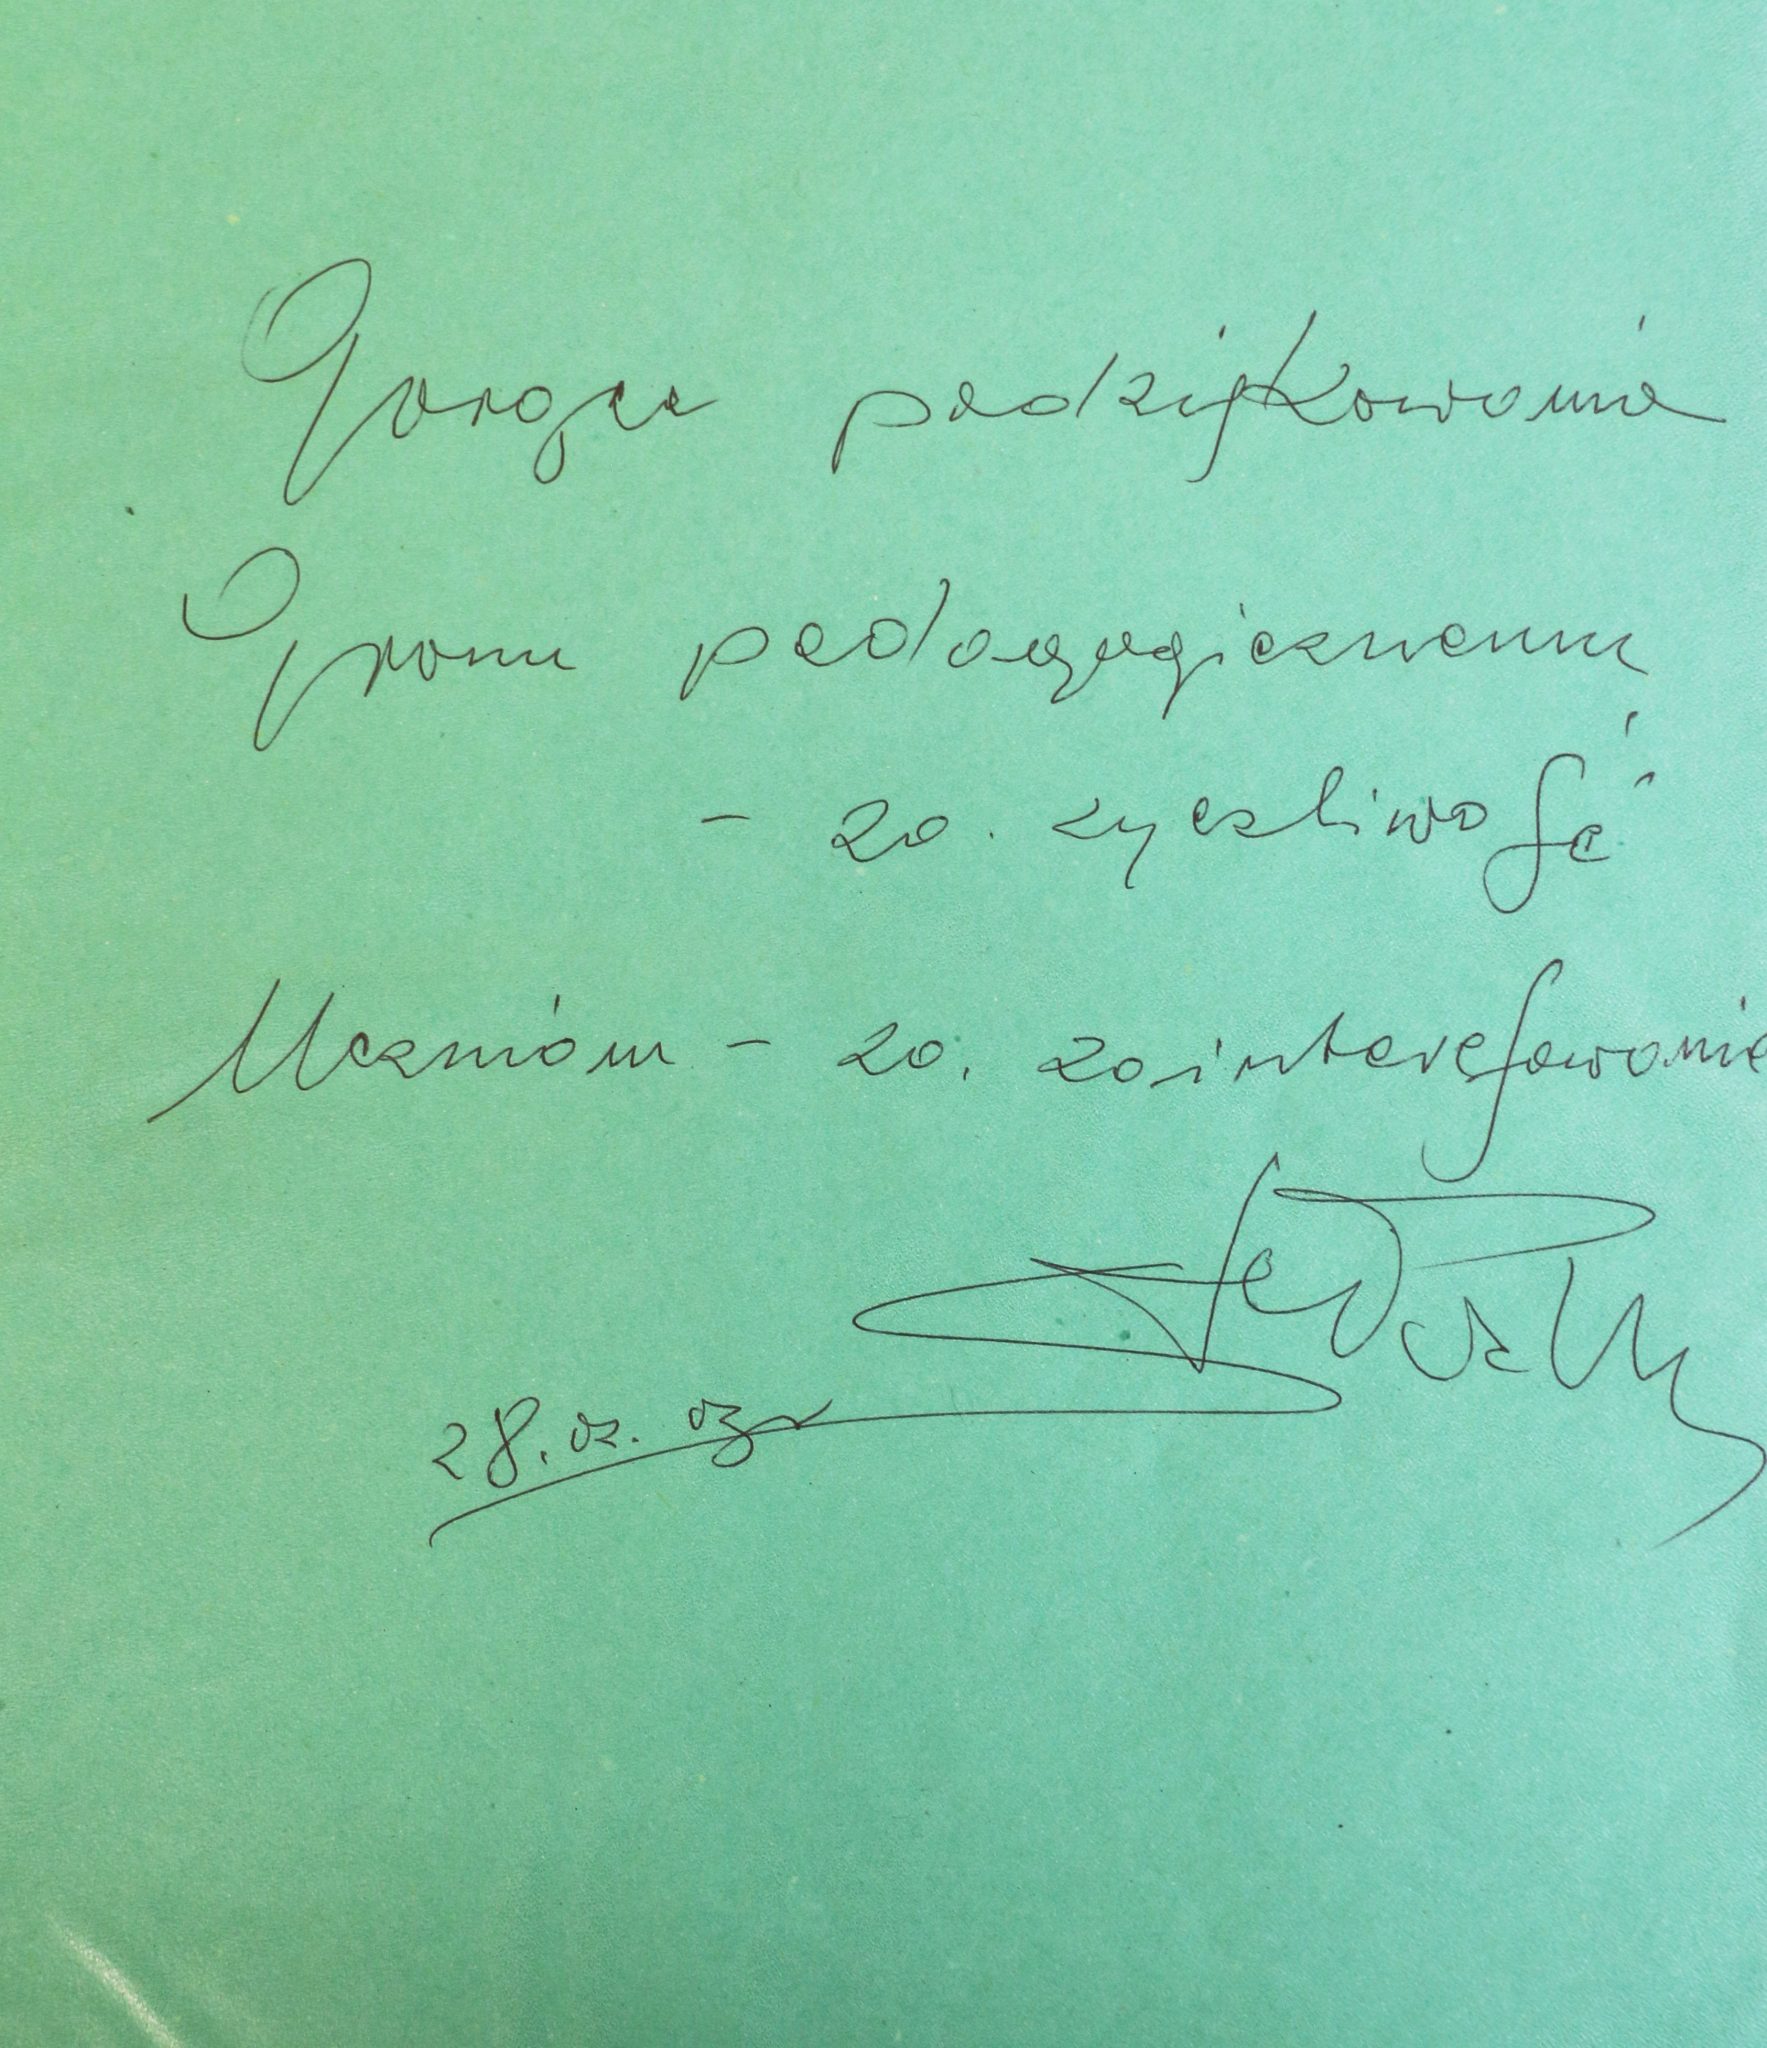 Gorące podziękowanie
Gronu pedagogicznemu
- za życzliwość
Uczniom - za zainteresowanie
28.02.03